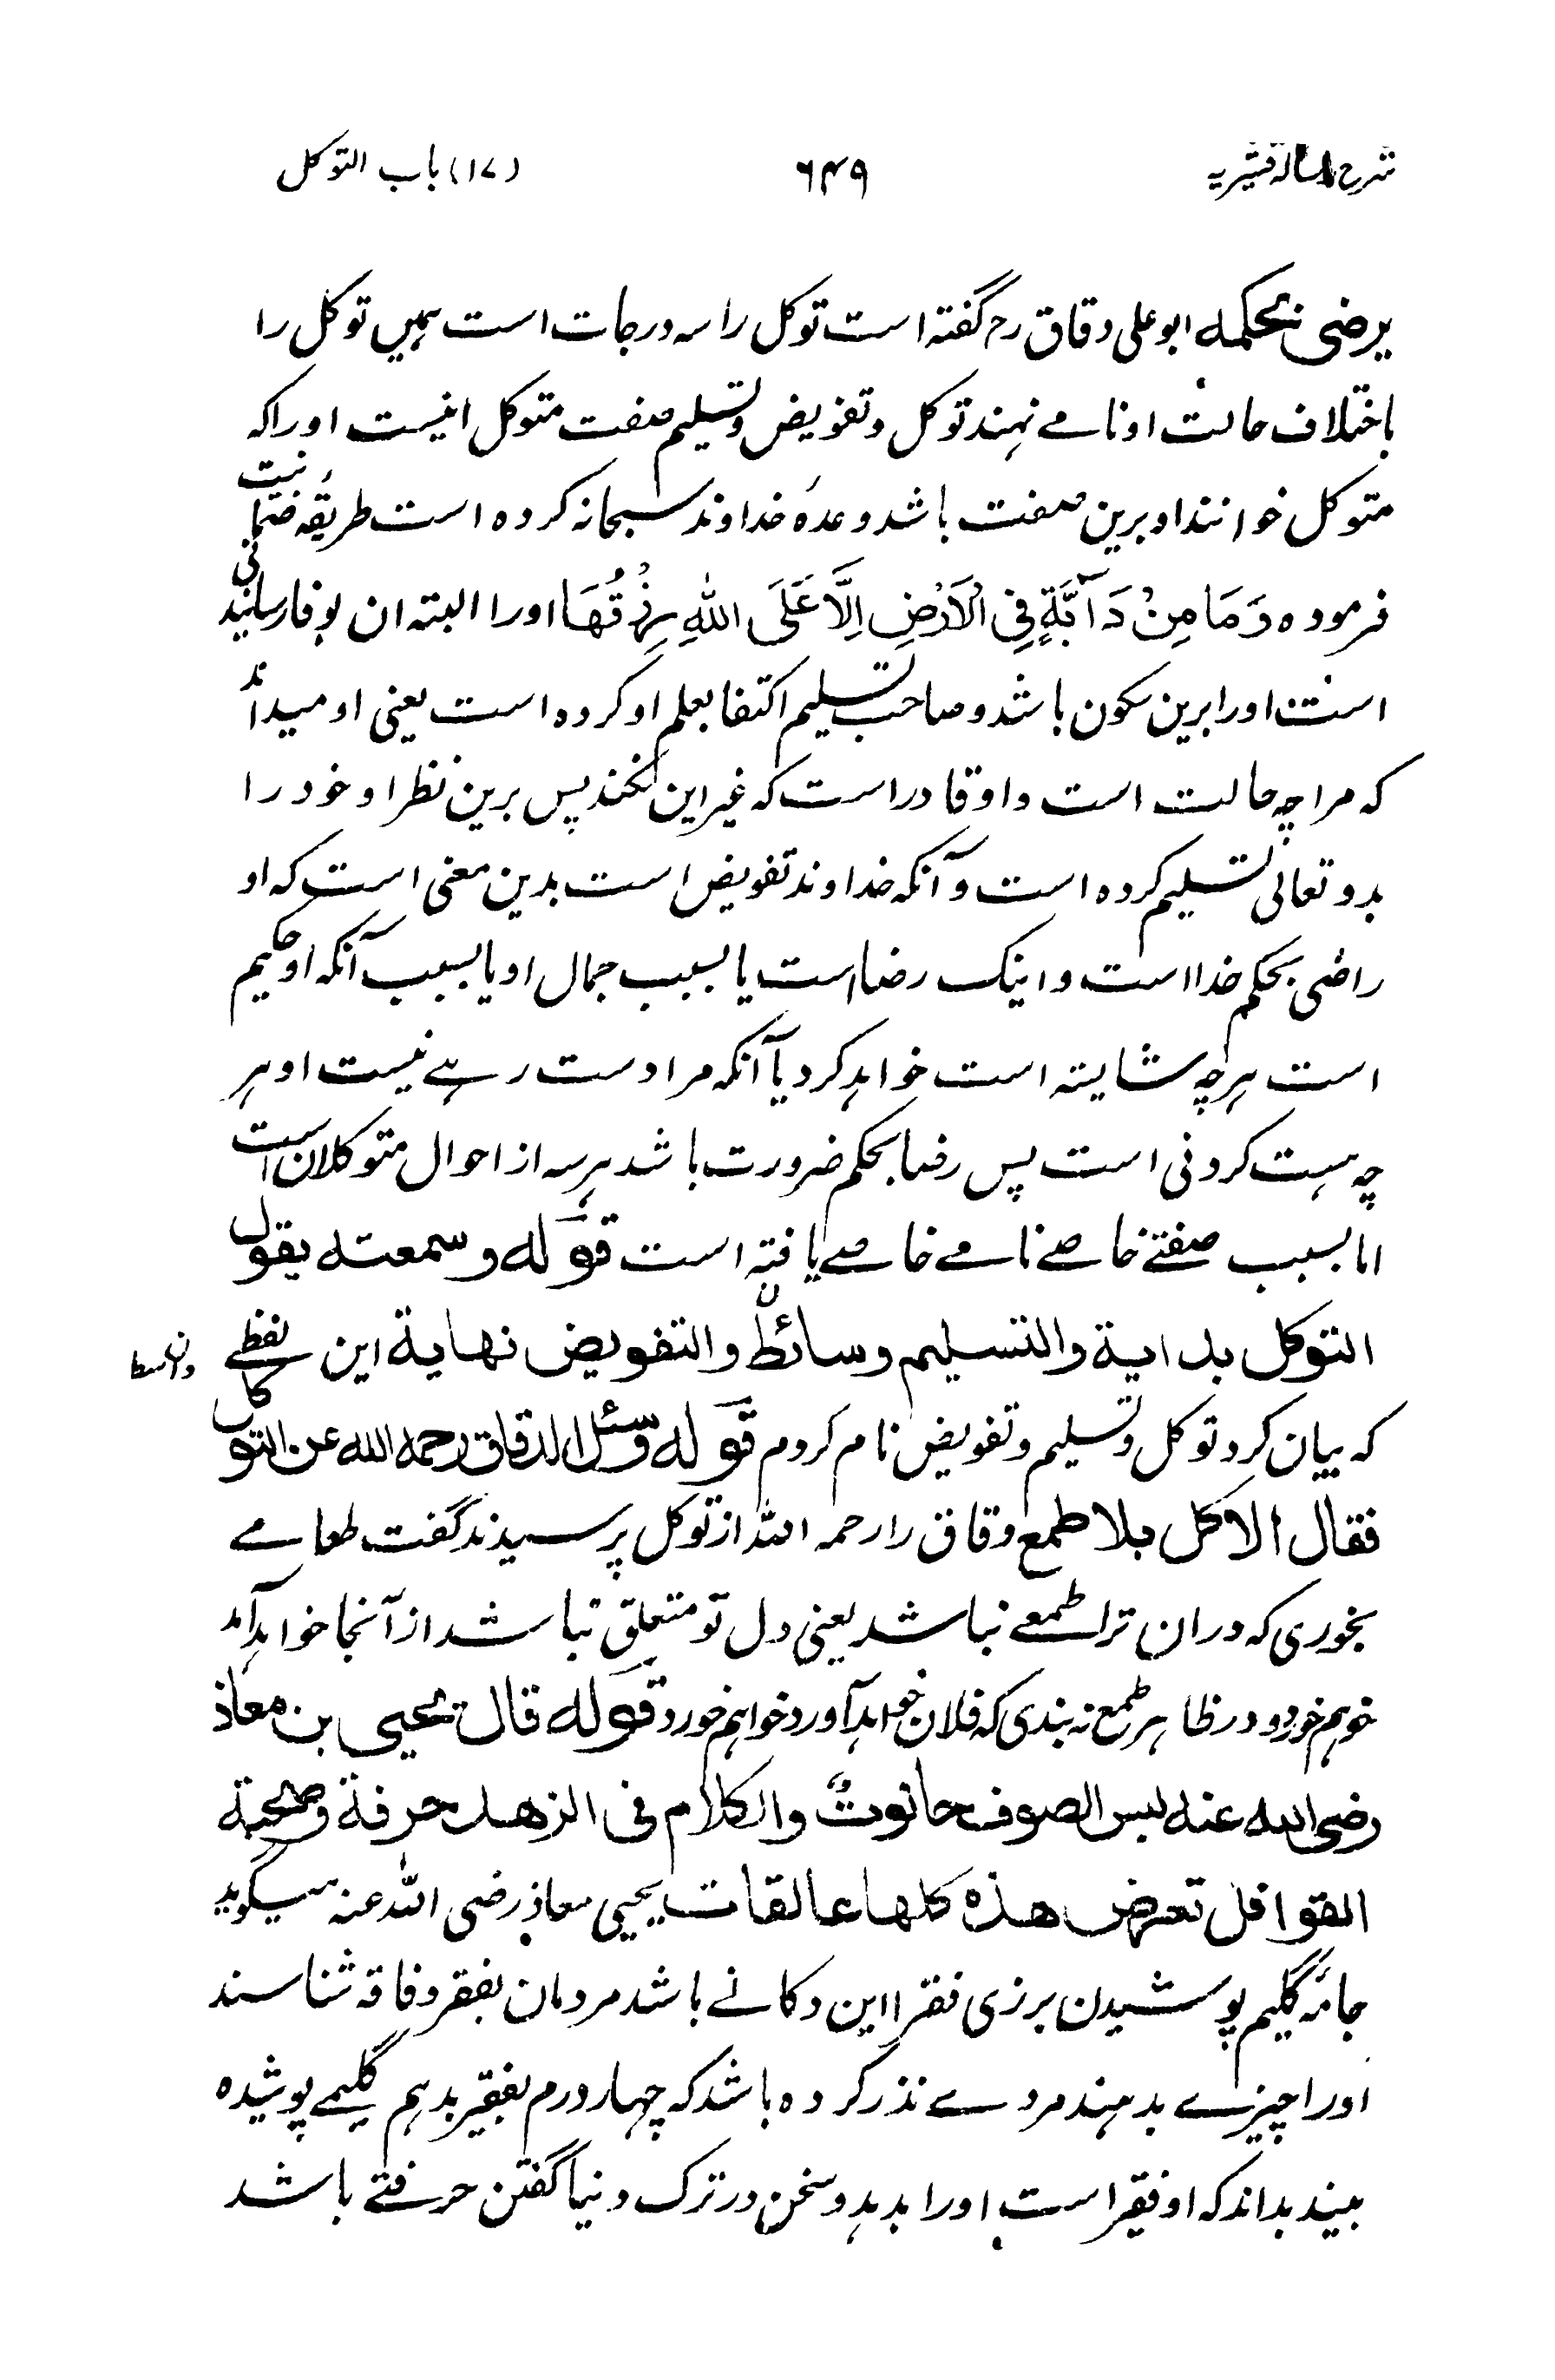 شرح رسالہ قشیریہ ۶۴۹ (۱۷) باب التوکل
یرضی بحکمہ ابو علی دقاق رح گفتہ است توکل را سہ درجات است ہمیں توکل را
باختلاف حالت او نامے نہند توکل و تفویض و تسلیم صفت متوکل اینست اورا کہ
متوکل خوانند او برین صفت باشد وعدہٴ خداوند سبحانہ کردہ است طریقہٴ ضمانیت
فرمودہ وَمَا مِنْ دَآبَّةٍ فِي الْاَرْضِ اِلَّا عَلَى اللّٰهِ رِزْقُهَا اورا البتہ ان بوفا رسانیدنی
است اورا برین سکون باشد و صاحب تسلیم اکتفا بعلم او کردہ است یعنی او میداند
کہ مرا چہ حالت است و او قادر است کہ غیر این کند پس برین نظر او خود را
بدو تعالی تسلیم کردہ است و آنکہ خداوند تفویض است بدین معنی است کہ او
راضی بحکم خدا است و اینک رضا است یا بسبب جمال او یا بسبب آنکہ او حکیم
است ہرچہ شایستہ است خواہد کرد یا آنکہ مرا دست رہے نیست او ہر
چہ ہست کردنی است پس رضا بحکم ضرورت باشد ہرسہ از احوال متوکلان است
اما بسبب صفتے خاصے نامے خاصے یافتہ است قولہ وسمعتہ یقول
التوکل بدایة والتسلیم وسائط والتفویض نہایة این لفظے
کہ بیان کرد توکل و تسلیم و تفویض نام کردم قولہ وسئل الدقاق رحمہ اللہ عن التوکل
فقال الاکل بلا طمع دقاق را رحمہ اللہ از توکل پرسیدند گفت طعامے
بخوری کہ دران ترا طمعے نباشد یعنی دل تو متعلق نباشد از آنجا خواہد آمد
خوہم خورد و در ظاہر طمع نہ بندی کہ فلان خواہد آورد خواہم خورد قولہ قال یحیی بن معاذ
رضی اللہ عنہ لبس الصوف حانوتٌ والکلام فی الزہد حرفة وصحبة
القوافل تعرض ہذہ کلہا عالقات یحیی معاذ رضی اللہ عنہ میگوید
جامہٴ گلیم پوشیدن برزی فقرا این دکانے باشد مردمان بفقر و فاقہ شناسند
اورا چیزے بدہند مردے نذر کردہ باشد کہ چہار درم بفقیر بدہم گلیمے پوشیدہ
بیند بداند کہ او فقیر است اورا بدہد و سخن در ترک دنیا گفتن حرفتے باشد